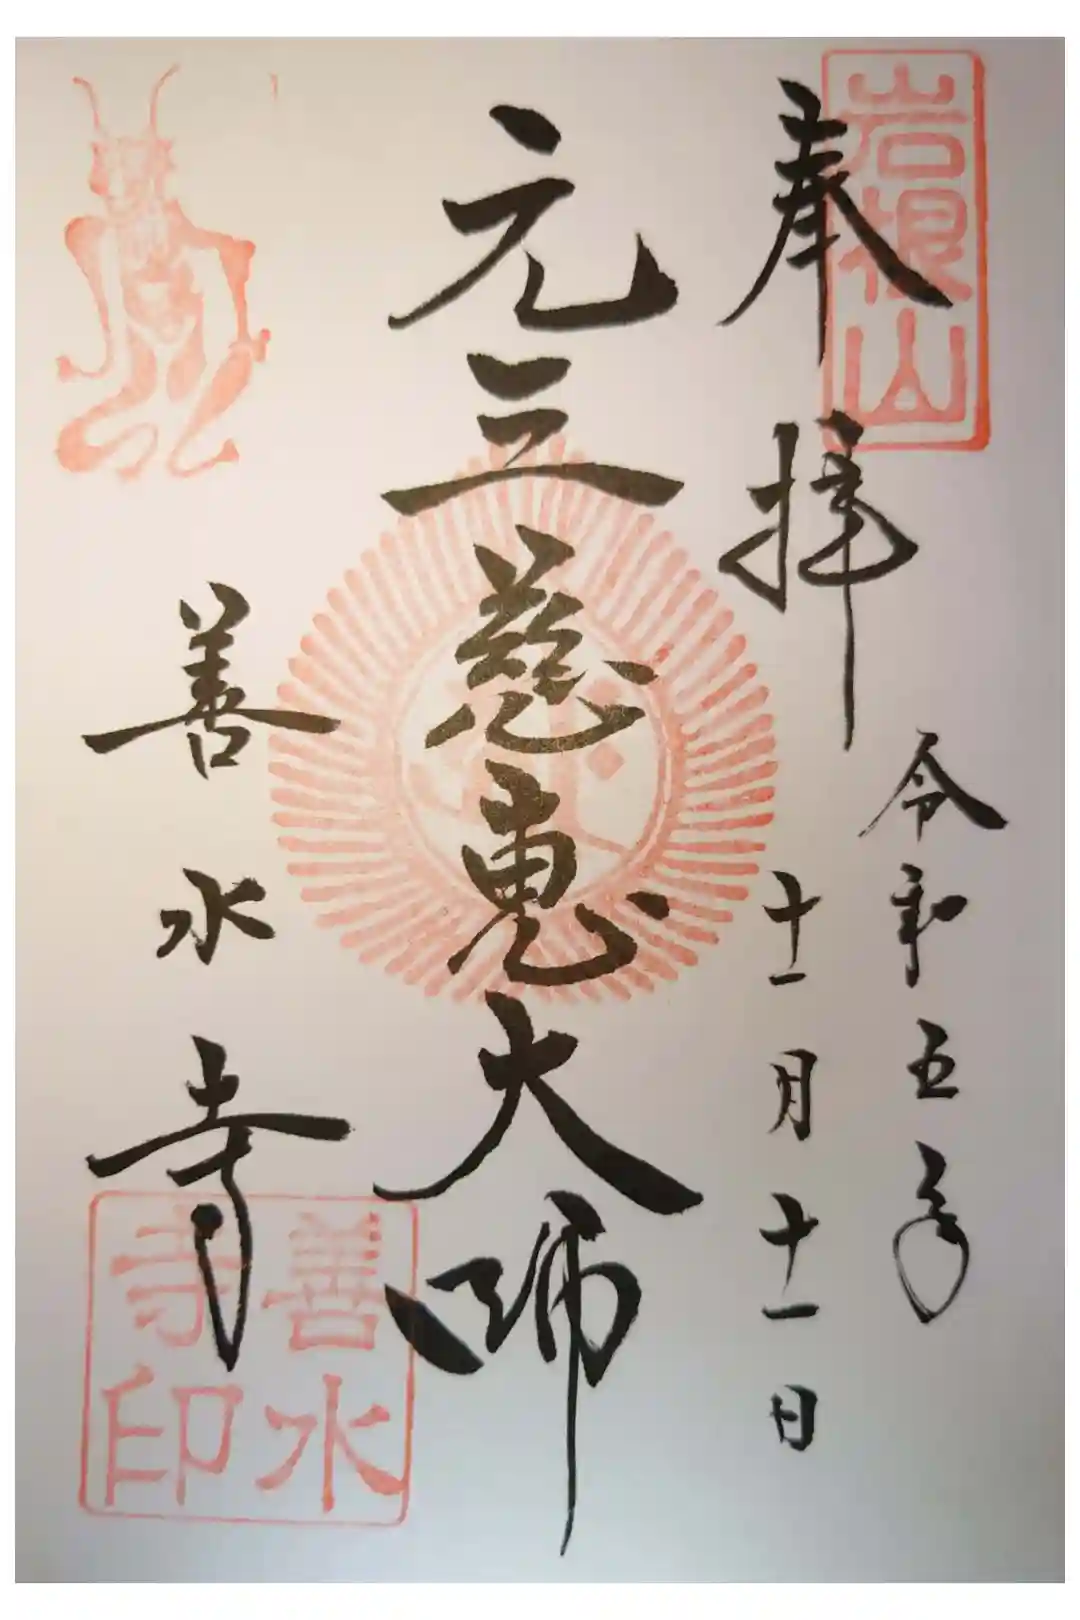 岩根山
奉拝
令和五年
十一月十一日
元三慈恵大師
善水寺
善水寺印